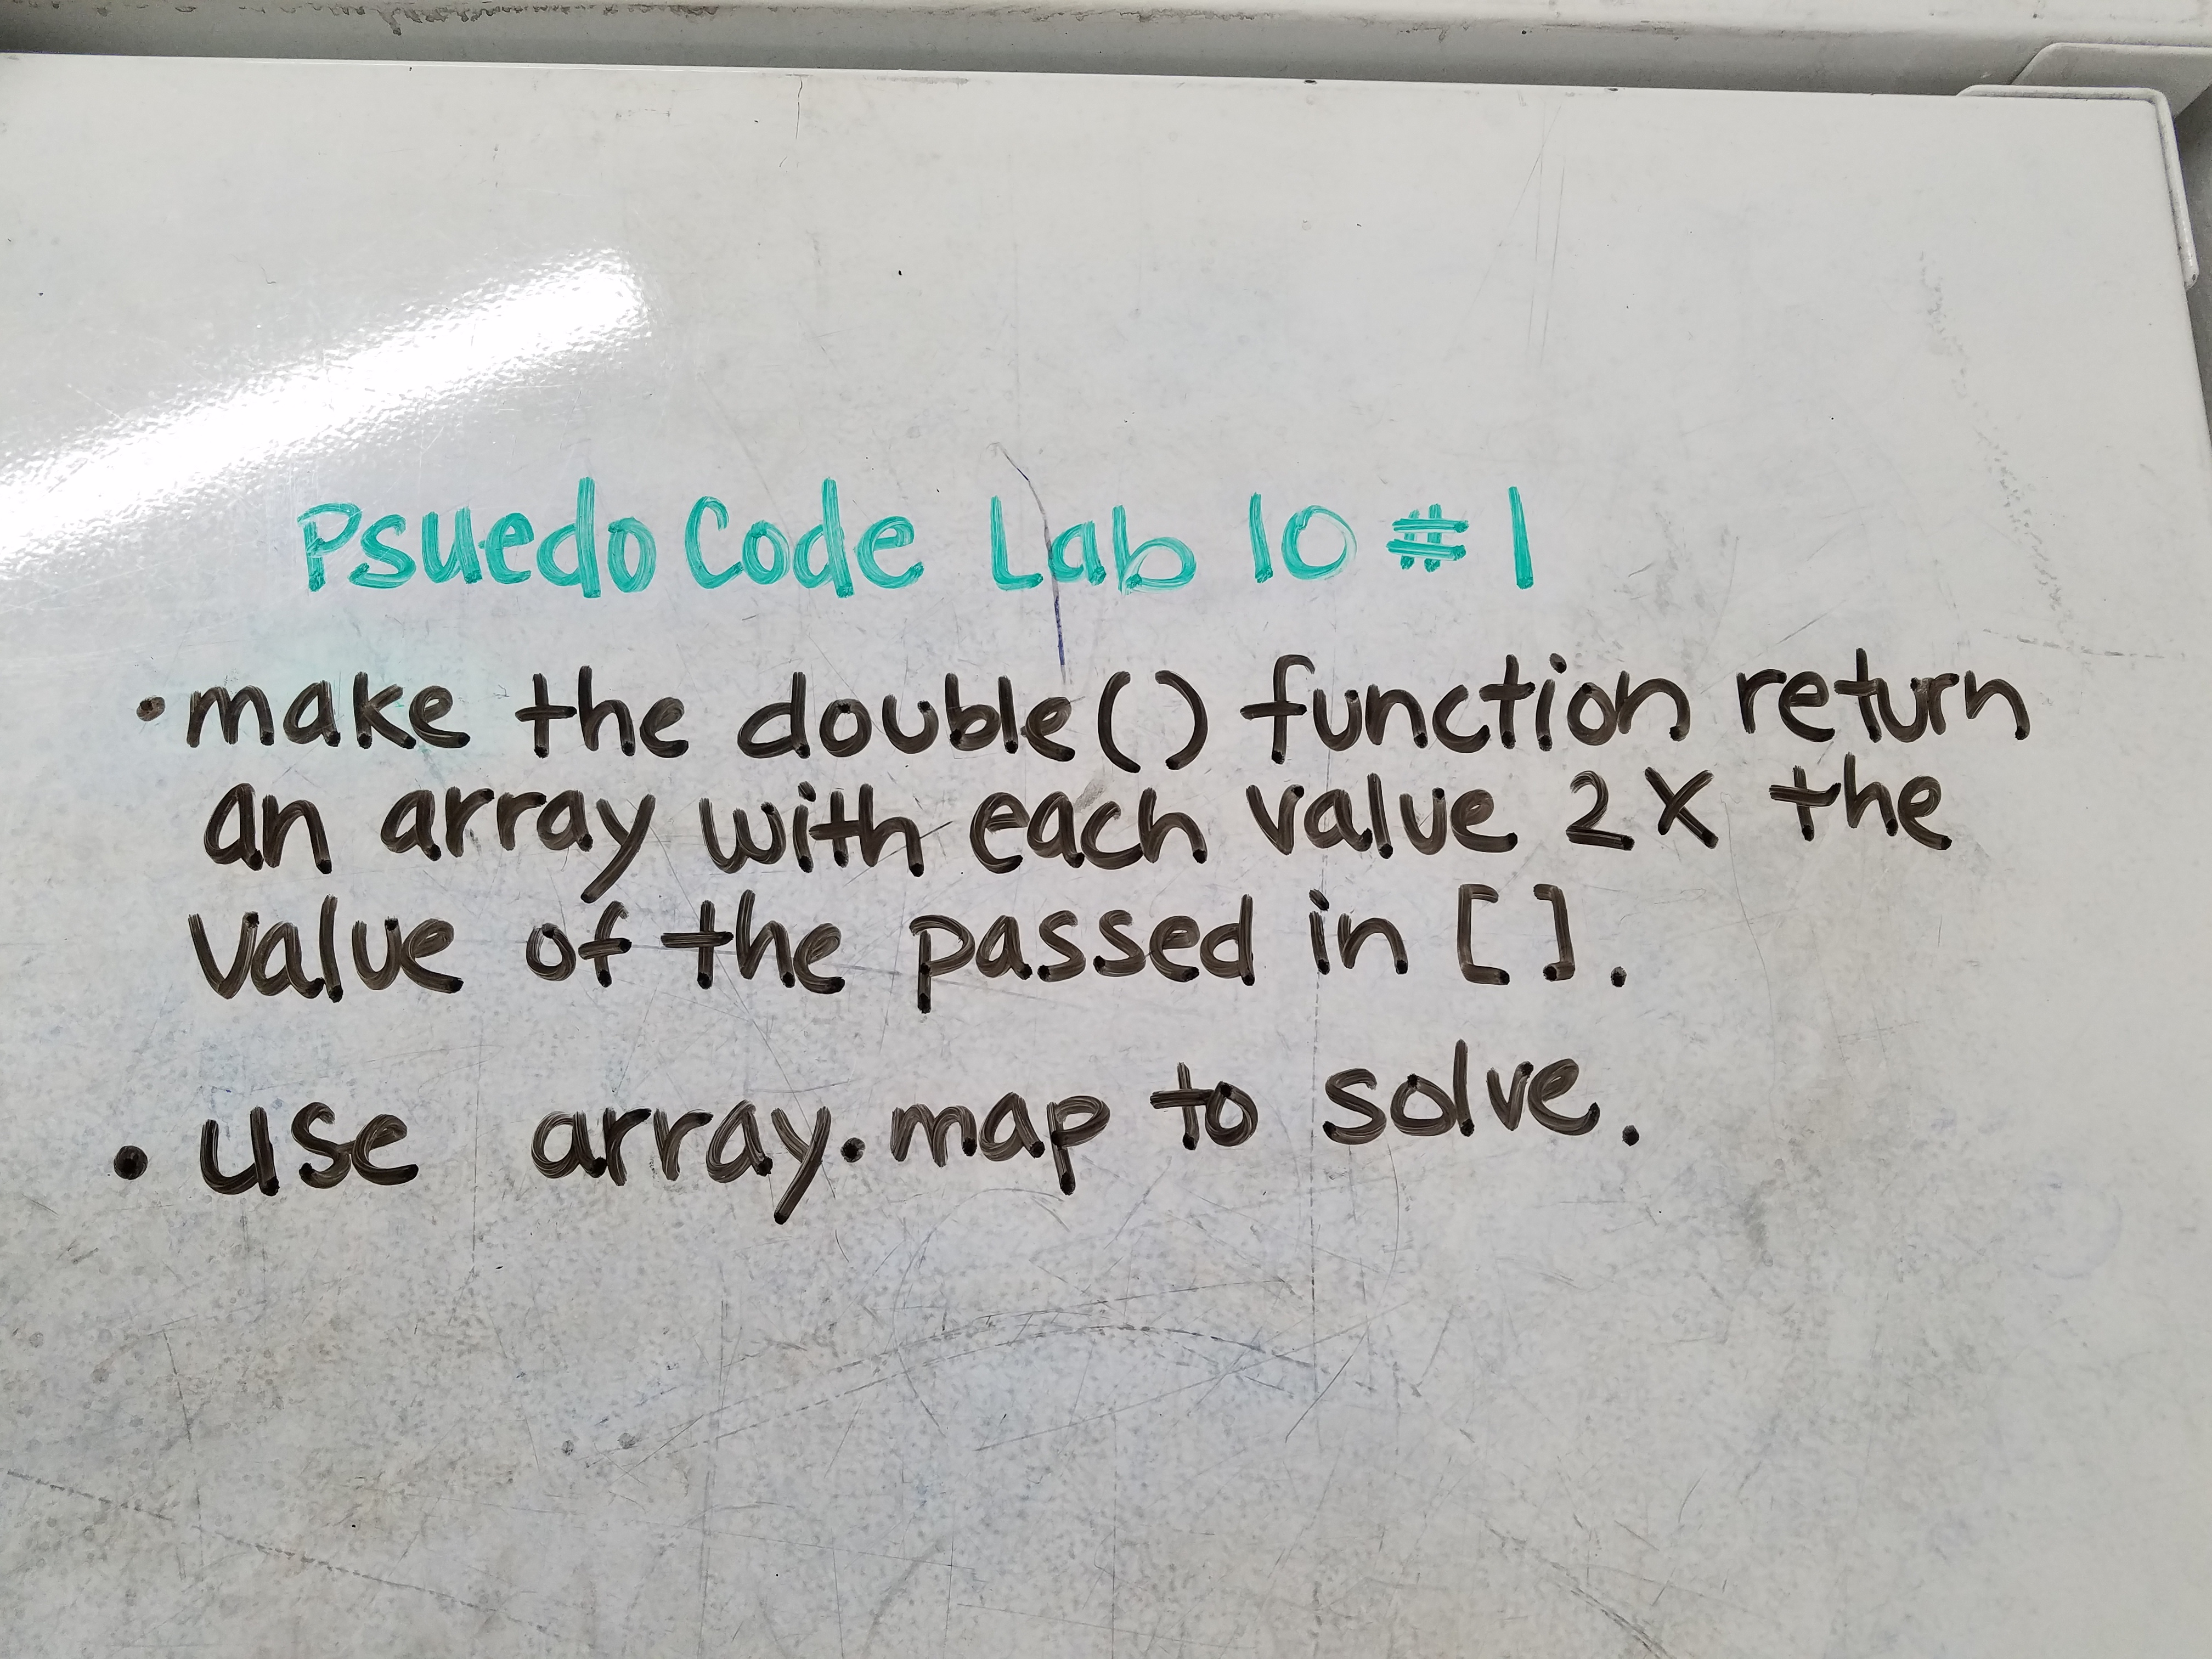 Psuedo Code Lab 10 # 1
• make the double() function return
an array with each value 2X the
value of the passed in [].
• use array.map to solve.